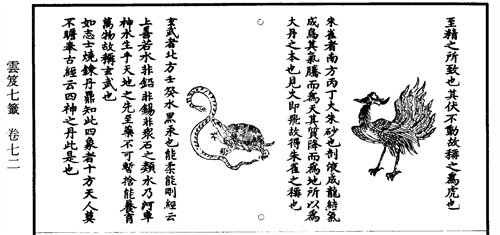 至精之所致也其伏不動故稱之爲虎也
朱雀者南方丙丁火朱砂也剖液成龍結氣
成鳥其氣騰而爲天其質降而爲地所以爲
大丹之本也見火即飛故得朱雀之稱也
玄武者北方壬癸水黑汞也能柔能剛經云
上善若水非鉛非錫非衆石之類水乃河車
神水生乎天地之先至藥不可暫捨能養育
萬物故稱玄武也
如志士燒鍊丹鼎知此四象者十方天人莫
不瞻奉古經云四神之丹此是也
雲笈七籤 卷七二